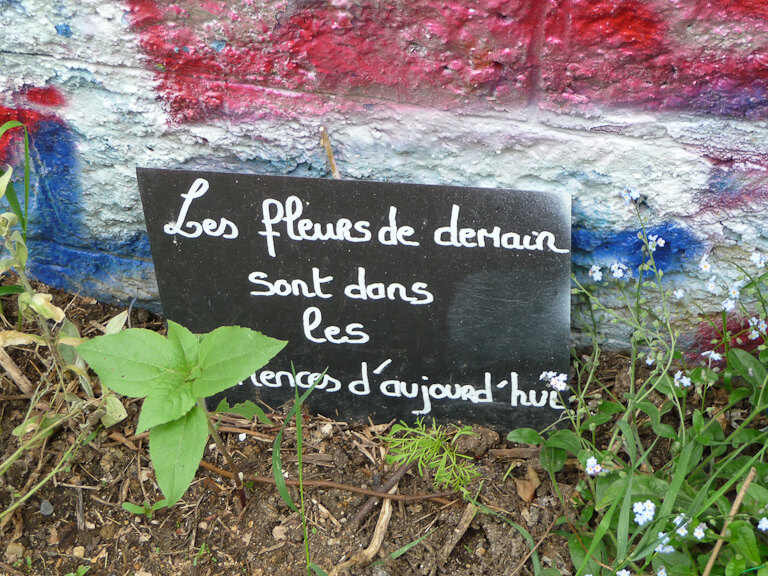 Les fleurs de demain
sont dans
les
mences d'aujourd'hui